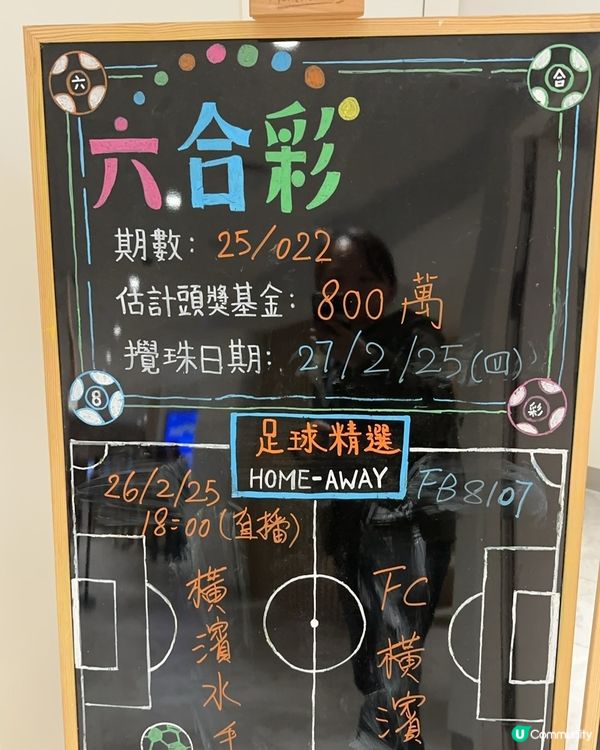 六
合
六合彩
期數: 25/022
估計頭獎基金: 800萬
攪珠日期: 27/2/25(四)
8
彩
足球精選
HOME-AWAY
26/2/25
FB8107
18:00(直播)
橫濱水手
FC橫濱
U Community